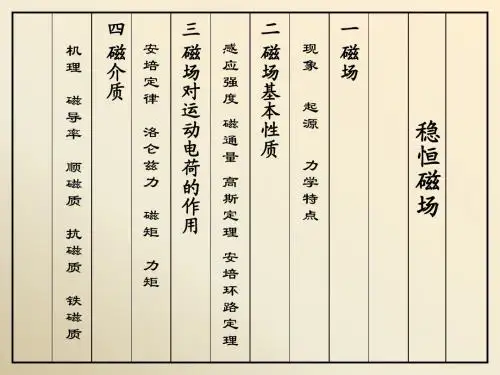 稳恒磁场
一 磁场
现象 起源 力学特点
二 磁场基本性质
感应强度 磁通量 高斯定理 安培环路定理
三 磁场对运动电荷的作用
安培定律 洛仑兹力 磁矩 力矩
四 磁介质
机理 磁导率 顺磁质 抗磁质 铁磁质